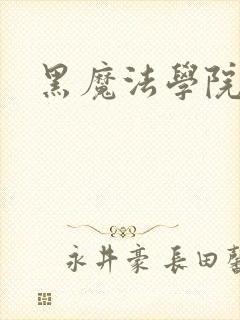 黑魔法學院
永井豪 長田馨